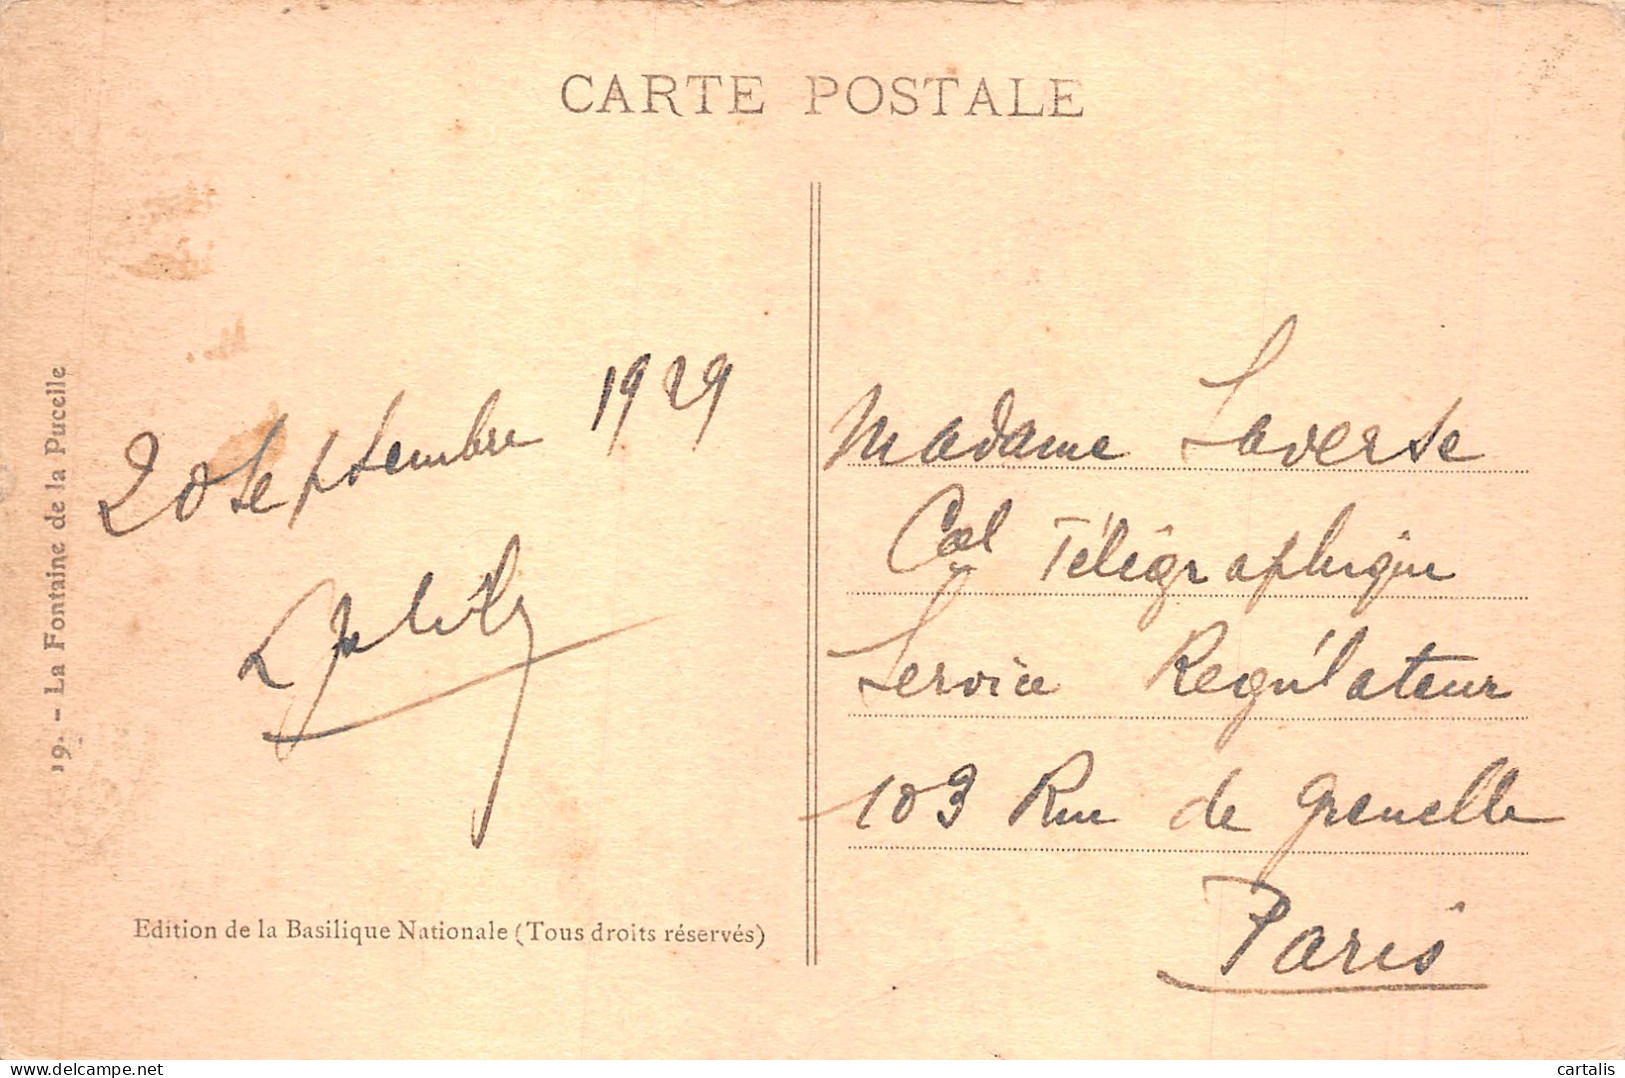 CARTE POSTALE
19. - La Fontaine de la Pucelle
20 Septembre 1929
Edition de la Basilique Nationale (Tous droits réservés)
Madame Laverse
Cal Télégraphique
Service Régulateur
103 Rue de Grenelle
Paris
delcampe.net
cartalis